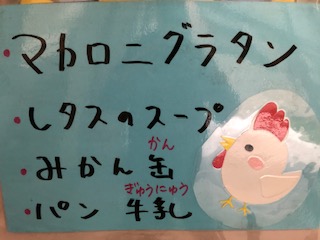 ・マカロニグラタン
・レタスのスープ
かん
・みかん缶
ぎゅうにゅう
・パン 牛乳